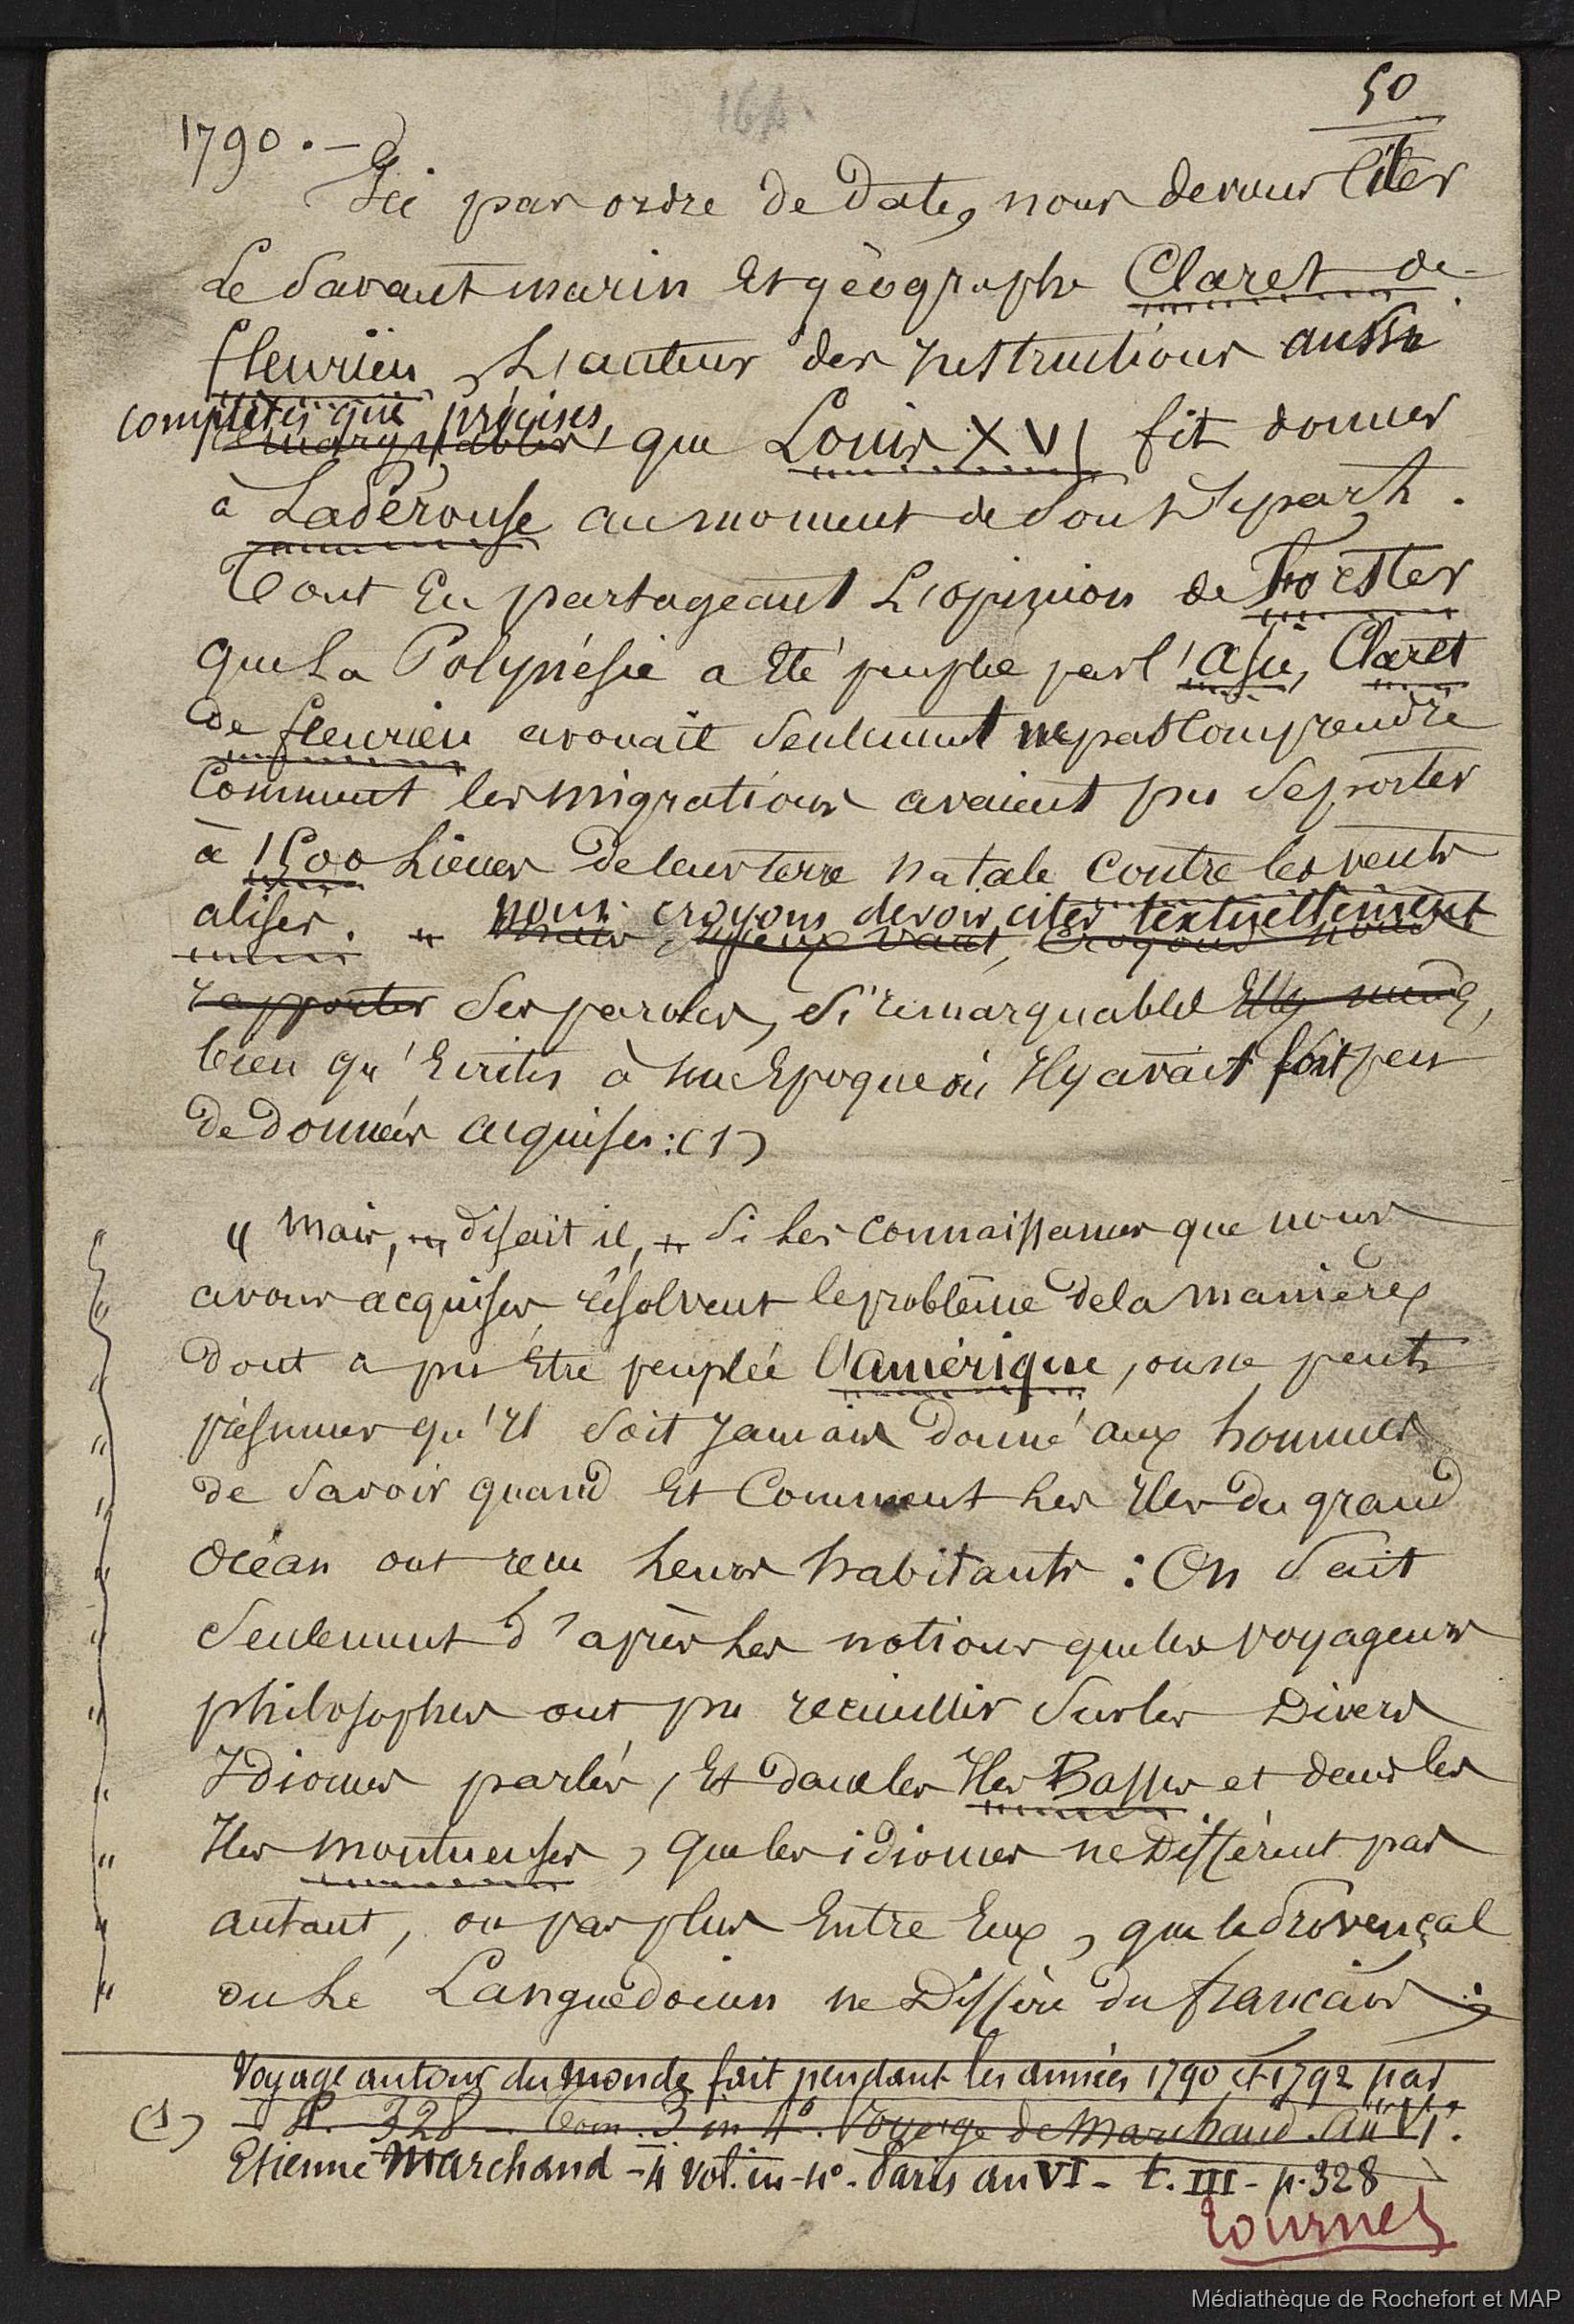 50
164
1790. —
Ici par ordre de date, nous devons citer
le savant marin et géographe Claret de
fleurieu, l'auteur des instructions aussi
complètes que précises,
remarquables, que Louis XVI fit donner
à Lapérouse au moment de son départ.
Tout en partageant l'opinion de Forster
que la Polynésie a été peuplée par l'asie, Claret
de fleurieu avouait seulement ne pas comprendre
comment les migrations avaient pu se porter
à 1500 lieues de leur terre natale contre les vents
alisés. nous croyons devoir citer textuellement
Mais, mieux vaut, croyons nous
rapporter ses paroles, si remarquables
bien qu'écrites à une époque où il y avait fort peu
de données acquises : (1)
" mais, — disait il, — si les connaissances que nous
avons acquises, résolvent le problême de la manière
dont a pu être peuplée l'amérique, on ne peut
" présumer qu'il soit jamais donné aux hommes
" de savoir quand et comment les iles du grand
" océan ont reçu leurs habitants : On sait
" seulement d'après les notions que les voyageurs
" philosophes ont pu recueillir sur les divers
" idiomes parlés, et dans les Iles Basses et dans les
" Iles montueuses, que les idiomes ne diffèrent pas
" autant, ou pas plus entre eux, que le Provençal
" ou le Languedocien ne diffère du français ;
Voyage autour du monde fait pendant les années 1790 et 1792 par
(1) — P. 328 — Tom. 3 in 4°. Voyage de Marchand. An VI.
Etienne Marchand - 4 vol. in-4°. Paris an VI - t. III - p. 328
tournez
Médiathèque de Rochefort et MAP